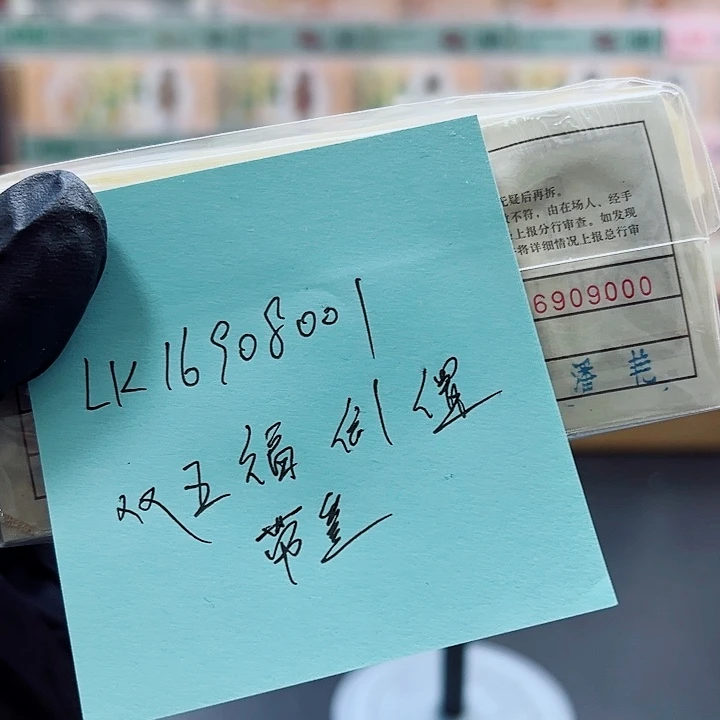 无疑后再拆。
不符，由在场人、经手
上报分行审查。如发现
将详细情况上报总行审
6909000
潘
LK16908001
双五福倒置
带